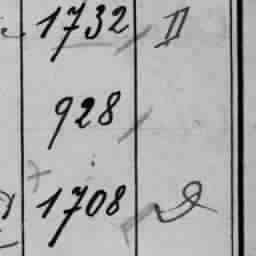 1732 II
928
1708